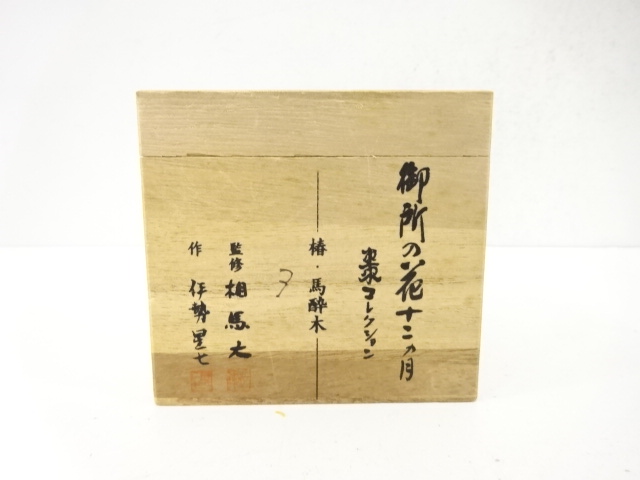 御所の花十二ヵ月
棗コレクション
椿・馬酔木
監修 相馬大
作 伊勢星七